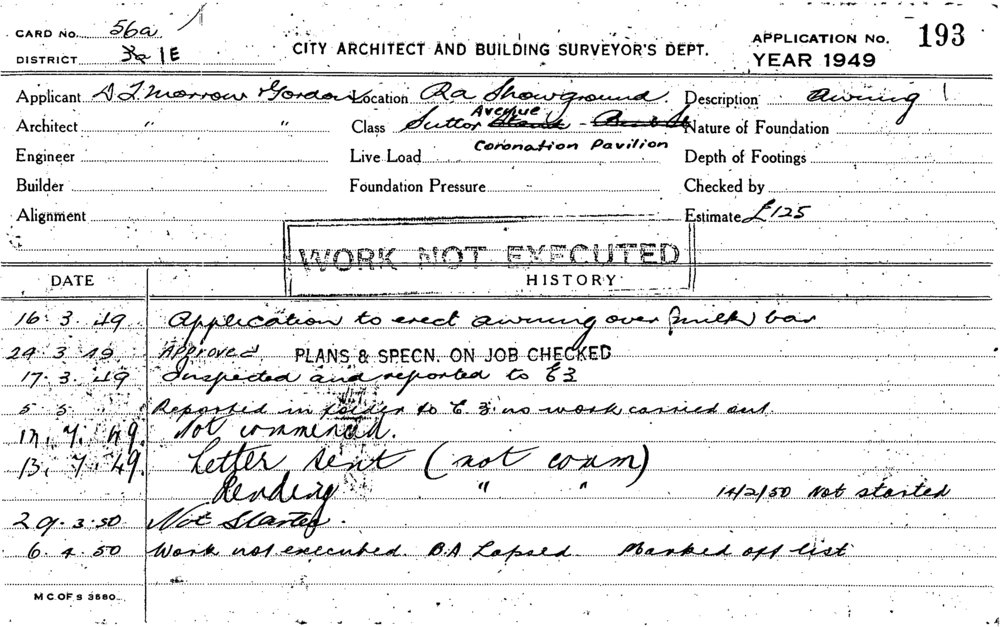 CARD No. 56a
CITY ARCHITECT AND BUILDING SURVEYOR'S DEPT.
APPLICATION No. 193
DISTRICT 1E
YEAR 1949
Applicant Morrow Gordon Location Ra Showground Description Awning
Architect " " Class Suttor Avenue Nature of Foundation
Coronation Pavilion
Engineer Live Load Depth of Footings
Builder Foundation Pressure Checked by
Alignment Estimate £125
WORK NOT EXECUTED
DATE HISTORY
16.3.49 Application to erect awning over milk bar
29.3.49 Approved PLANS & SPECN. ON JOB CHECKED
17.3.49 Inspected and reported to E3
5 5 Reported in folder to E.3. no work carried out
7.49. Not commenced.
13.7.49. Letter sent (not comm)
Pending " " 14/2/50 Not started
29.3.50 Not Started.
6.4.50 Work not executed. B.A Lapsed. Marked off list
M C OF S 3580